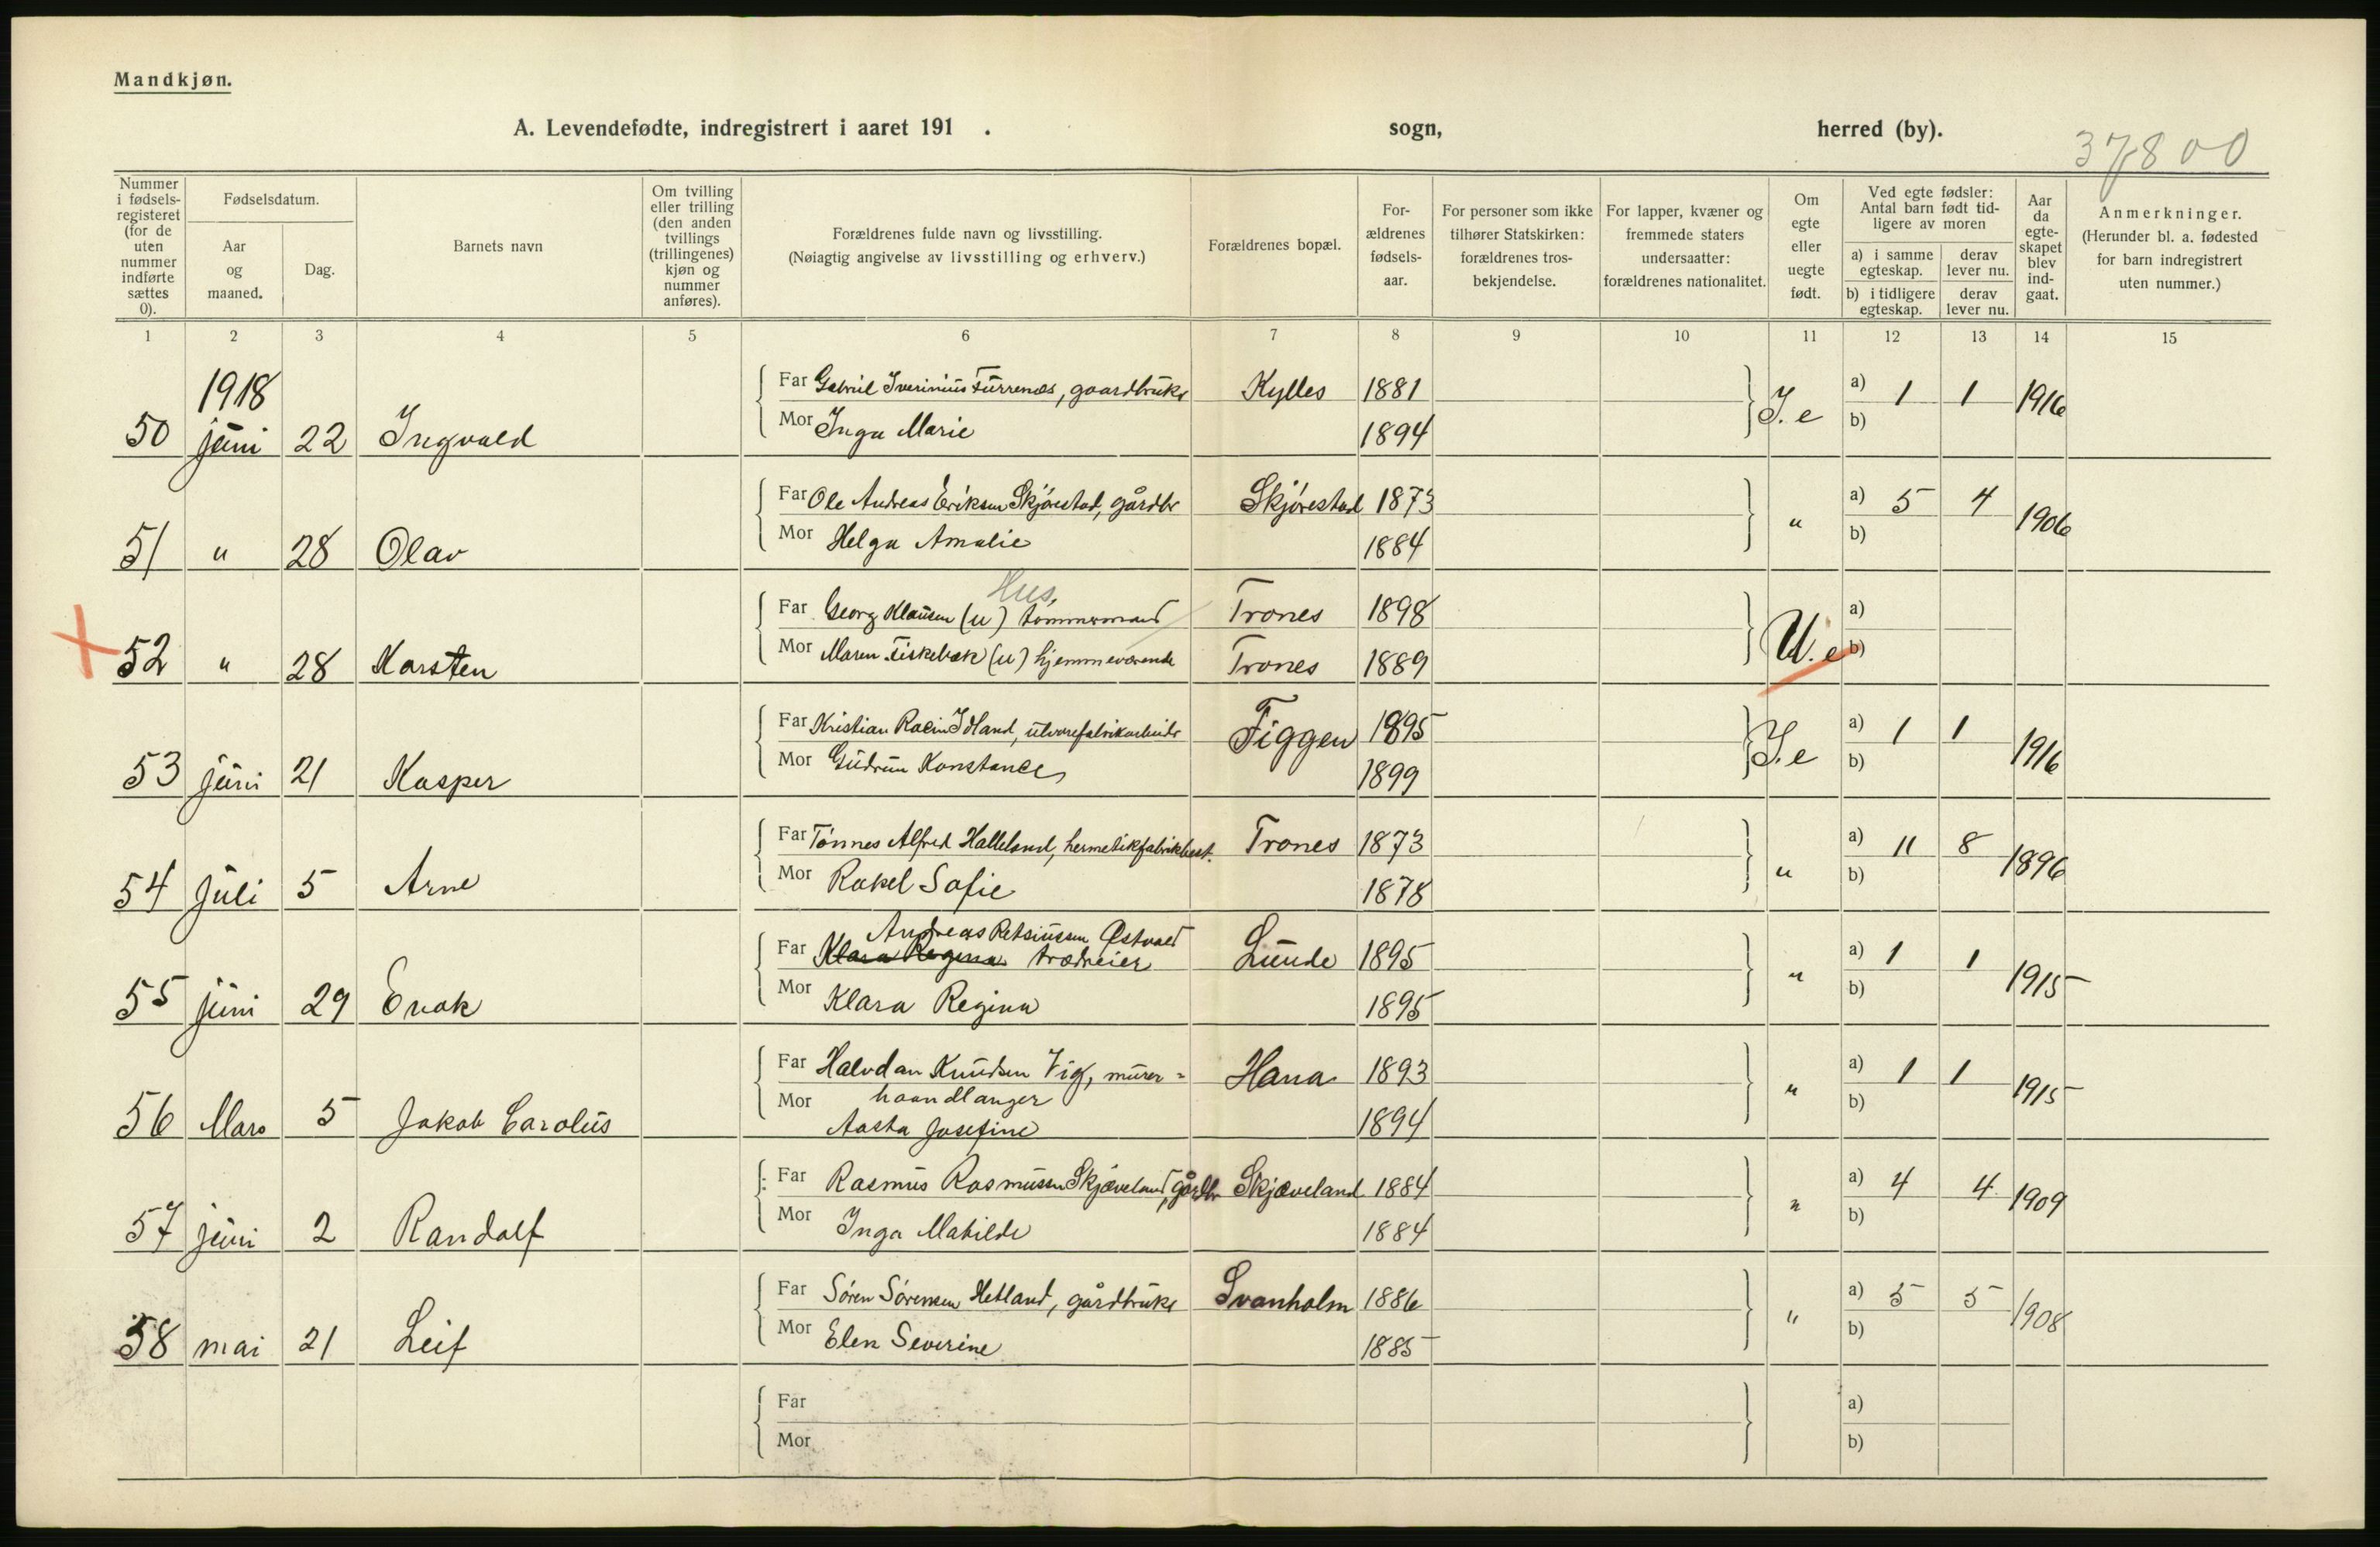 Mandkjøn.
A. Levendefødte, indregistrert i aaret 191 . sogn, herred (by).
37800
Nummer i fødsels-registeret (for de uten nummer indførte sættes 0).
Fødselsdatum.
Aar og maaned.
Dag.
Barnets navn
Om tvilling eller trilling (den anden tvillings (trillingenes) kjøn og nummer anføres).
Forældrenes fulde navn og livsstilling.
(Nøiagtig angivelse av livsstilling og erhverv.)
Forældrenes bopæl.
For-ældrenes fødsels-aar.
For personer som ikke tilhører Statskirken: forældrenes tros-bekjendelse.
For lapper, kvæner og fremmede staters undersaatter: forældrenes nationalitet.
Om egte eller uegte født.
Ved egte fødsler: Antal barn født tid-ligere av moren
a) i samme egteskap.
derav lever nu.
b) i tidligere egteskap.
derav lever nu.
Aar da egte-skapet blev ind-gaat.
Anmerkninger.
(Herunder bl. a. fødested for barn indregistrert uten nummer.)
1 2 3 4 5 6 7 8 9 10 11 12 13 14 15
1918
Far Gabriel Iverinius Furrenes, gaardbruker Kylles 1881 a) 1 1 1916
50 juni 22 Ingvald Mor Inga Marie 1894 I. e b)
Far Ole Andreas Eriksen Skjørestad, gårdbr Skjørestad 1873 a) 5 4 1906
51 " 28 Olav Mor Helga Amalie 1884 " b)
Hus,
Far Georg Klausen (u) tømmermand Trones 1898 a)
52 " 28 Karsten Mor Maren Fiskebæk (u) hjemmeværende Trones 1889 U. e b)
Far Kristian Idland, Figgen 1895 a) 1 1 1916
53 juni 21 Kasper Mor Gudrun Konstance 1899 I. e b)
Far Tønnes Alfred Halleland, hermetikfabrikbest. Trones 1873 a) 11 8 1896
54 juli 5 Arne Mor Rakel Sofie 1878 " b)
Andreas Retsiussen Østvold
Far Klara Regina trædreier Lunde 1895 a) 1 1 1915
55 juni 29 Enok Mor Klara Regina 1895 " b)
Far Halvdan Knudsen Vig, murer= Hana 1893 a) 1 1 1915
haandlanger
56 Mars 5 Jakob Carolus Mor Aasta Josefine 1894 " b)
Far Rasmus Rasmussen Skjæveland, gårdbr Skjæveland 1884 a) 4 4 1909
57 juni 2 Randolf Mor Inga Matilde 1884 " b)
Far Søren Sørensen Hetland, gårdbruker Svanholm 1886 a) 5 5 1908
58 mai 21 Leif Mor Elen Severine 1885 " b)
Far a)
Mor b)